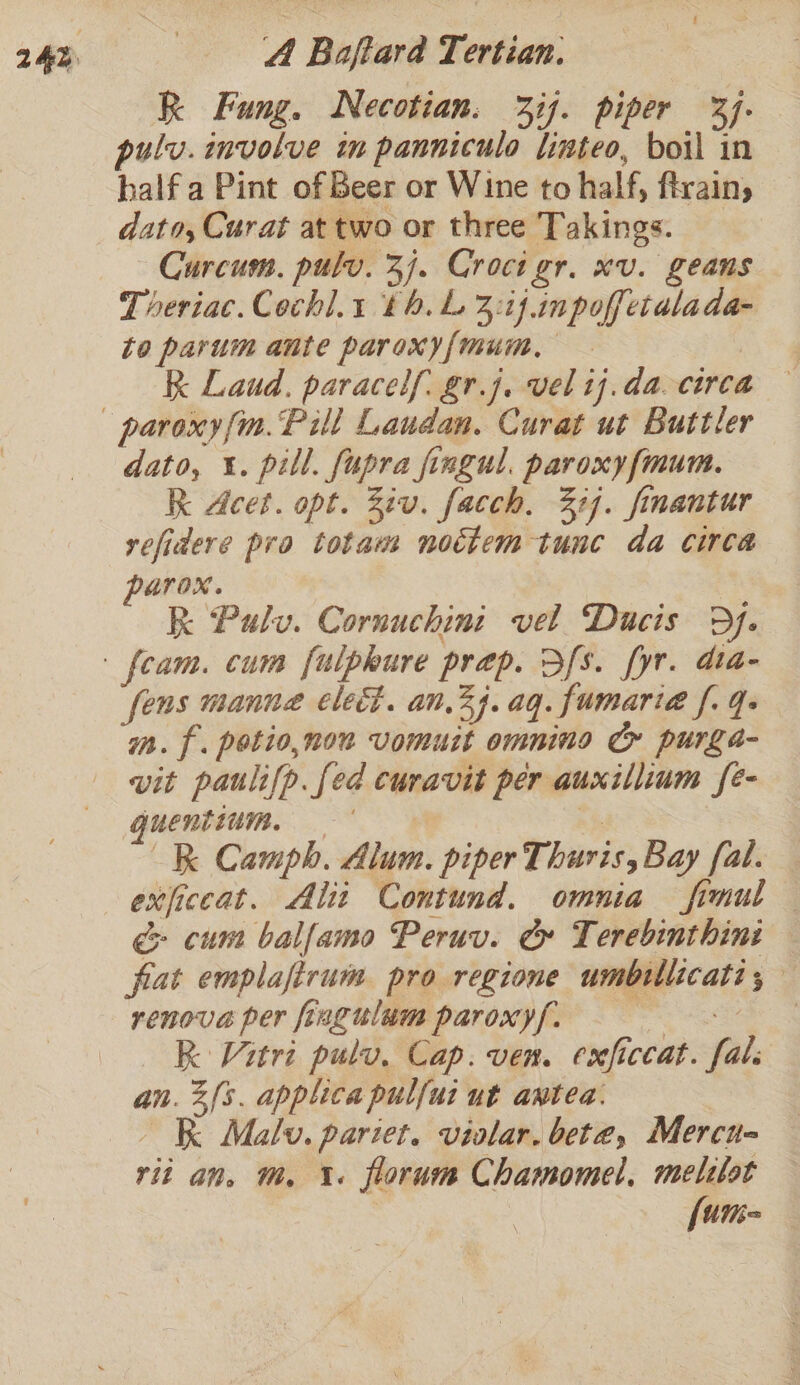 242 A Baſtard Tertian.
℞ Fung. Necotian. ʒij. piper ʒj.
pulv. involve in panniculo linteo, boil in
half a Pint of Beer or Wine to half, ſtrain,
dato, Curat at two or three Takings.
Curcum. pulv. ʒj. Croci gr. xv. geans
Theriac. Cochl. 1 th. L ʒij. in poſſet alada-
to parum ante paroxyſmum.
℞ Laud. paracelſ. gr. j. vel ij. da circa
paroxyſm. Pill Laudan. Curat ut Buttler
dato, 1. pill. ſupra ſingul. paroxyſmum.
℞ Acet. opt. ℥iv. ſacch. ℥ij. ſinantur
reſidere pro totam noctem tunc da circa
parox.
℞ Pulv. Cornuchini vel Ducis ℈j.
ſcam. cum ſulphure præp. ℈ſs. ſyr. dia-
ſens mannæ elect. an. ℥j. aq. fumariæ ſ. q.
m. f. potio, non vomuit omnino & purga-
vit pauliſp. ſed curavit per auxillium ſe-
quentium.
℞ Camph. Alum. piper Thuris, Bay ſal.
exſiccat. Alii Contund. omnia ſimul
& cum balſamo Peruv. & Terebinthini
fiat emplaſtrum pro regione umbillicati;
renova per ſingulum paroxyſ.
℞ Vitri pulv. Cap. ven. exſiccat. ſal.
an. ℥ſs. applica pulſui ut antea.
℞ Malv. pariet. violar. betæ, Mercu-
rii an. m. 1. florum Chamomel. melilot
ſum-